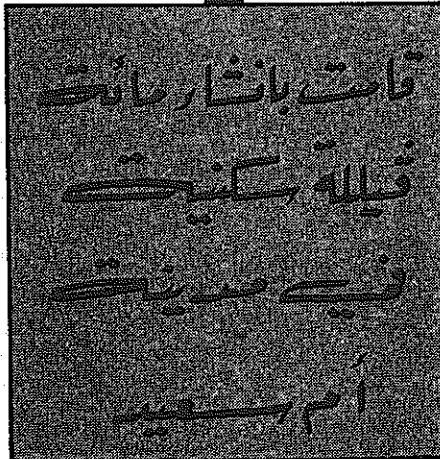 قامت بانشار مائة
فيللة سكنية
في مدينة
أم سعيد